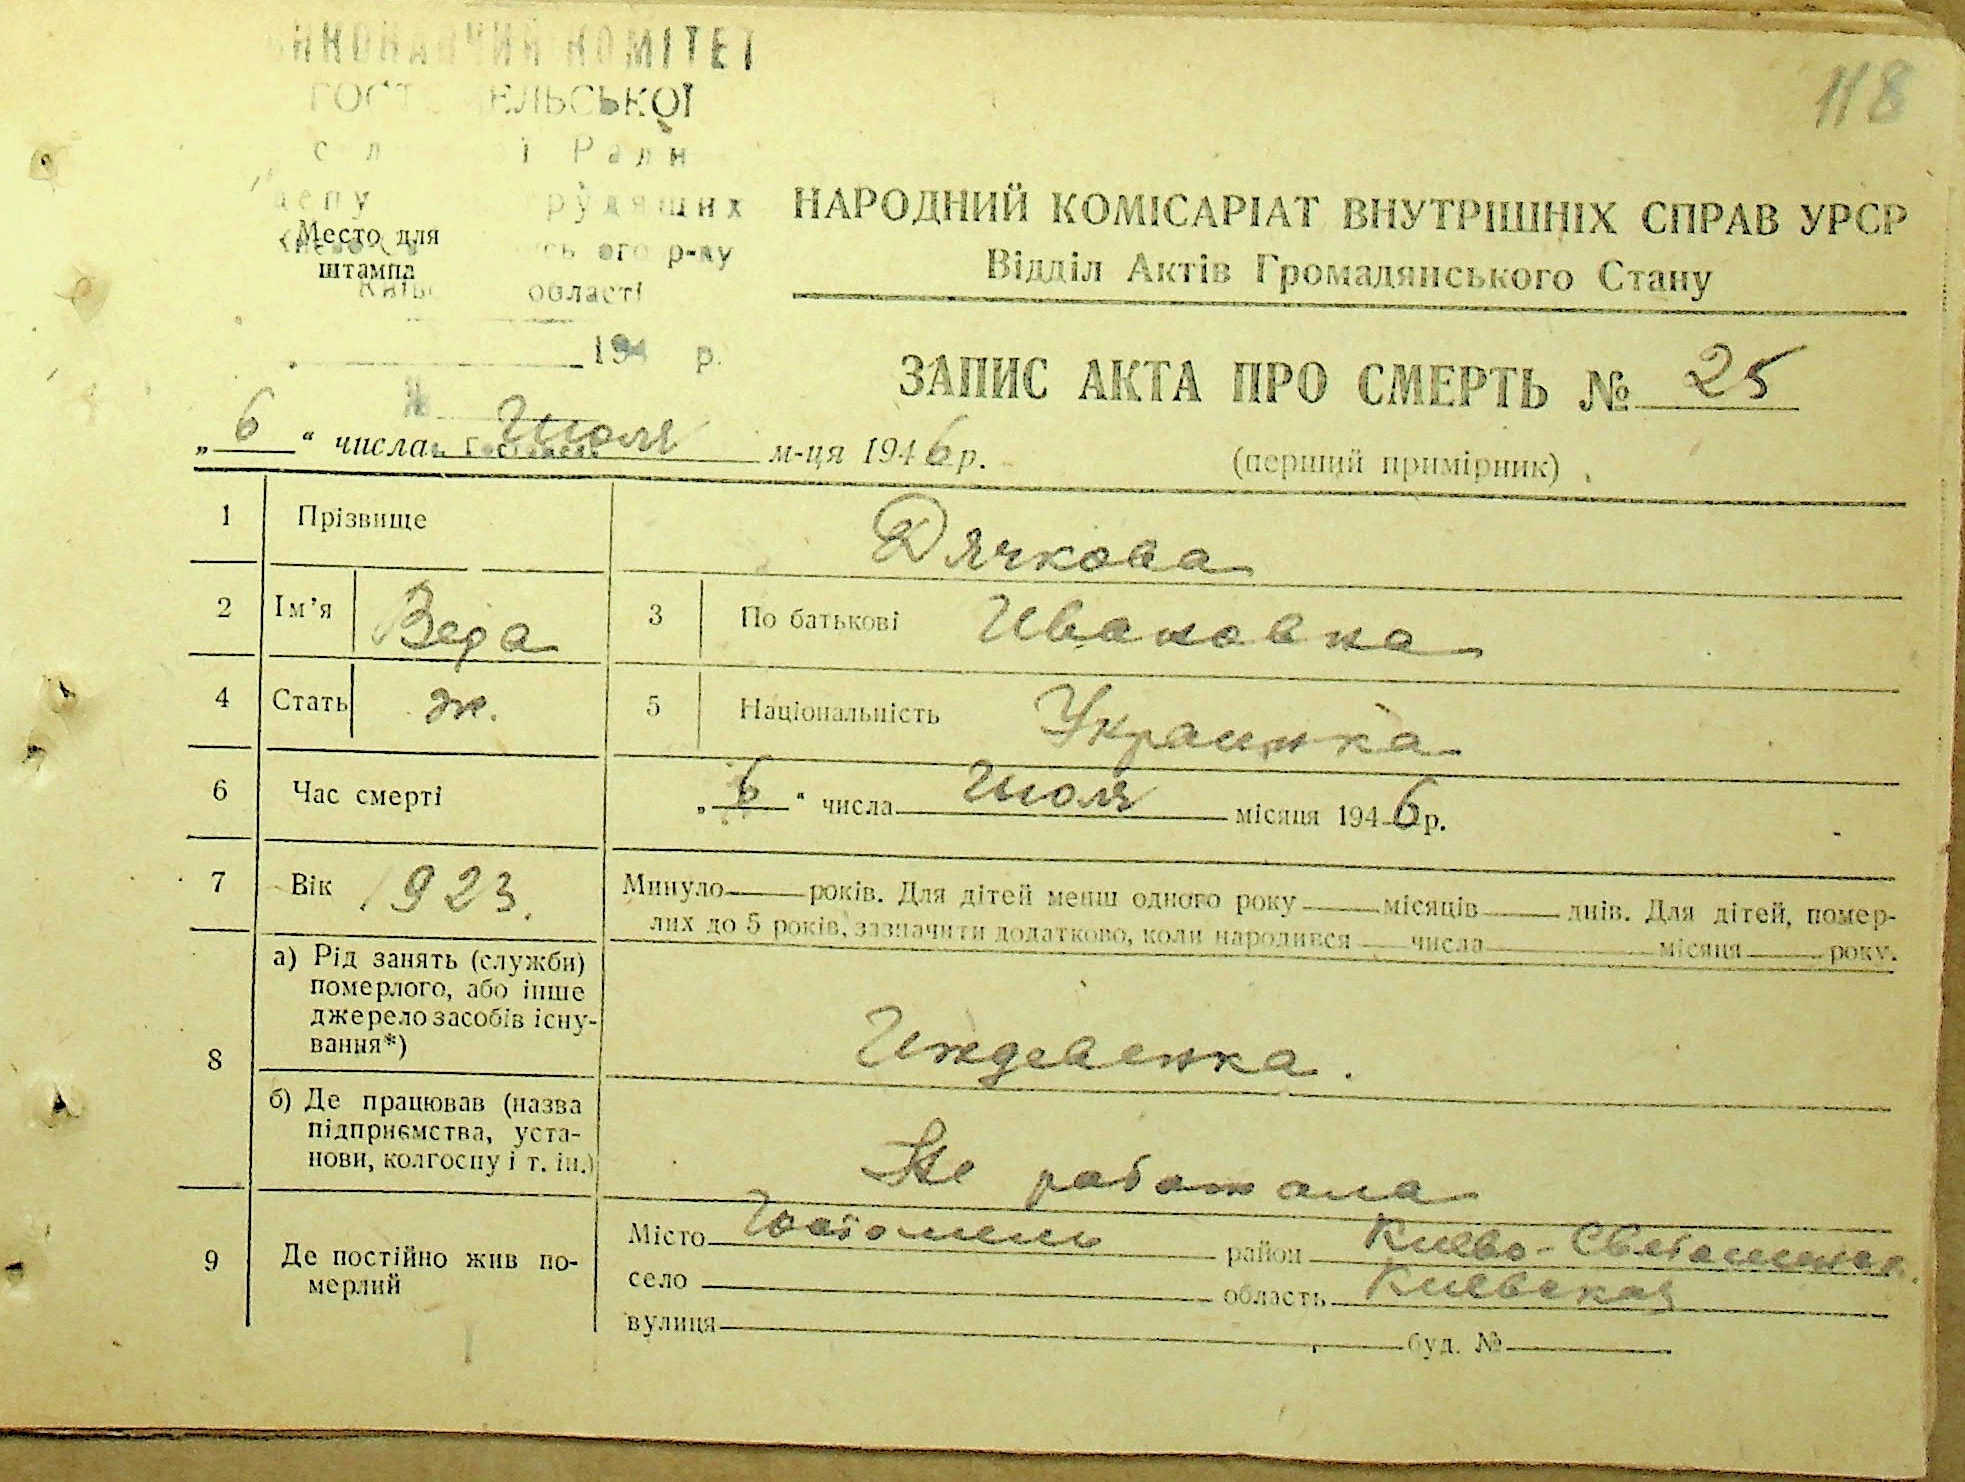 118
ВИКОНАВЧИЙ КОМІТЕТ
ГОСТОМЕЛЬСЬКОЇ
Ради
трудящих
р-ну
області
194 р.
Место для
штампа
НАРОДНИЙ КОМІСАРІАТ ВНУТРІШНІХ СПРАВ УРСР
Відділ Актів Громадянського Стану
ЗАПИС АКТА ПРО СМЕРТЬ № 25
„6“ числа Июля м-ця 1946 р.
(перший примірник)
1 Прізвище Дячкова
2 Ім'я Вера 3 По батькові Ивановна
4 Стать ж. 5 Національність Украинка
6 Час смерті „6“ числа Июля місяця 1946 р.
7 Вік 1923. Минуло років. Для дітей менш одного року місяців днів. Для дітей, помер-
лих до 5 років, зазначити додатково, коли народився числа місяця року.
8 а) Рід занять (служби)
померлого, або інше
джерело засобів існу-
вання*)
Иждевенка.
б) Де працював (назва
підприємства, уста-
нови, колгоспу і т. ін.)
Не работала
9 Де постійно жив по-
мерлий
Місто Гостомель район Киево-Святошинск.
село область Киевская
вулиця буд. №